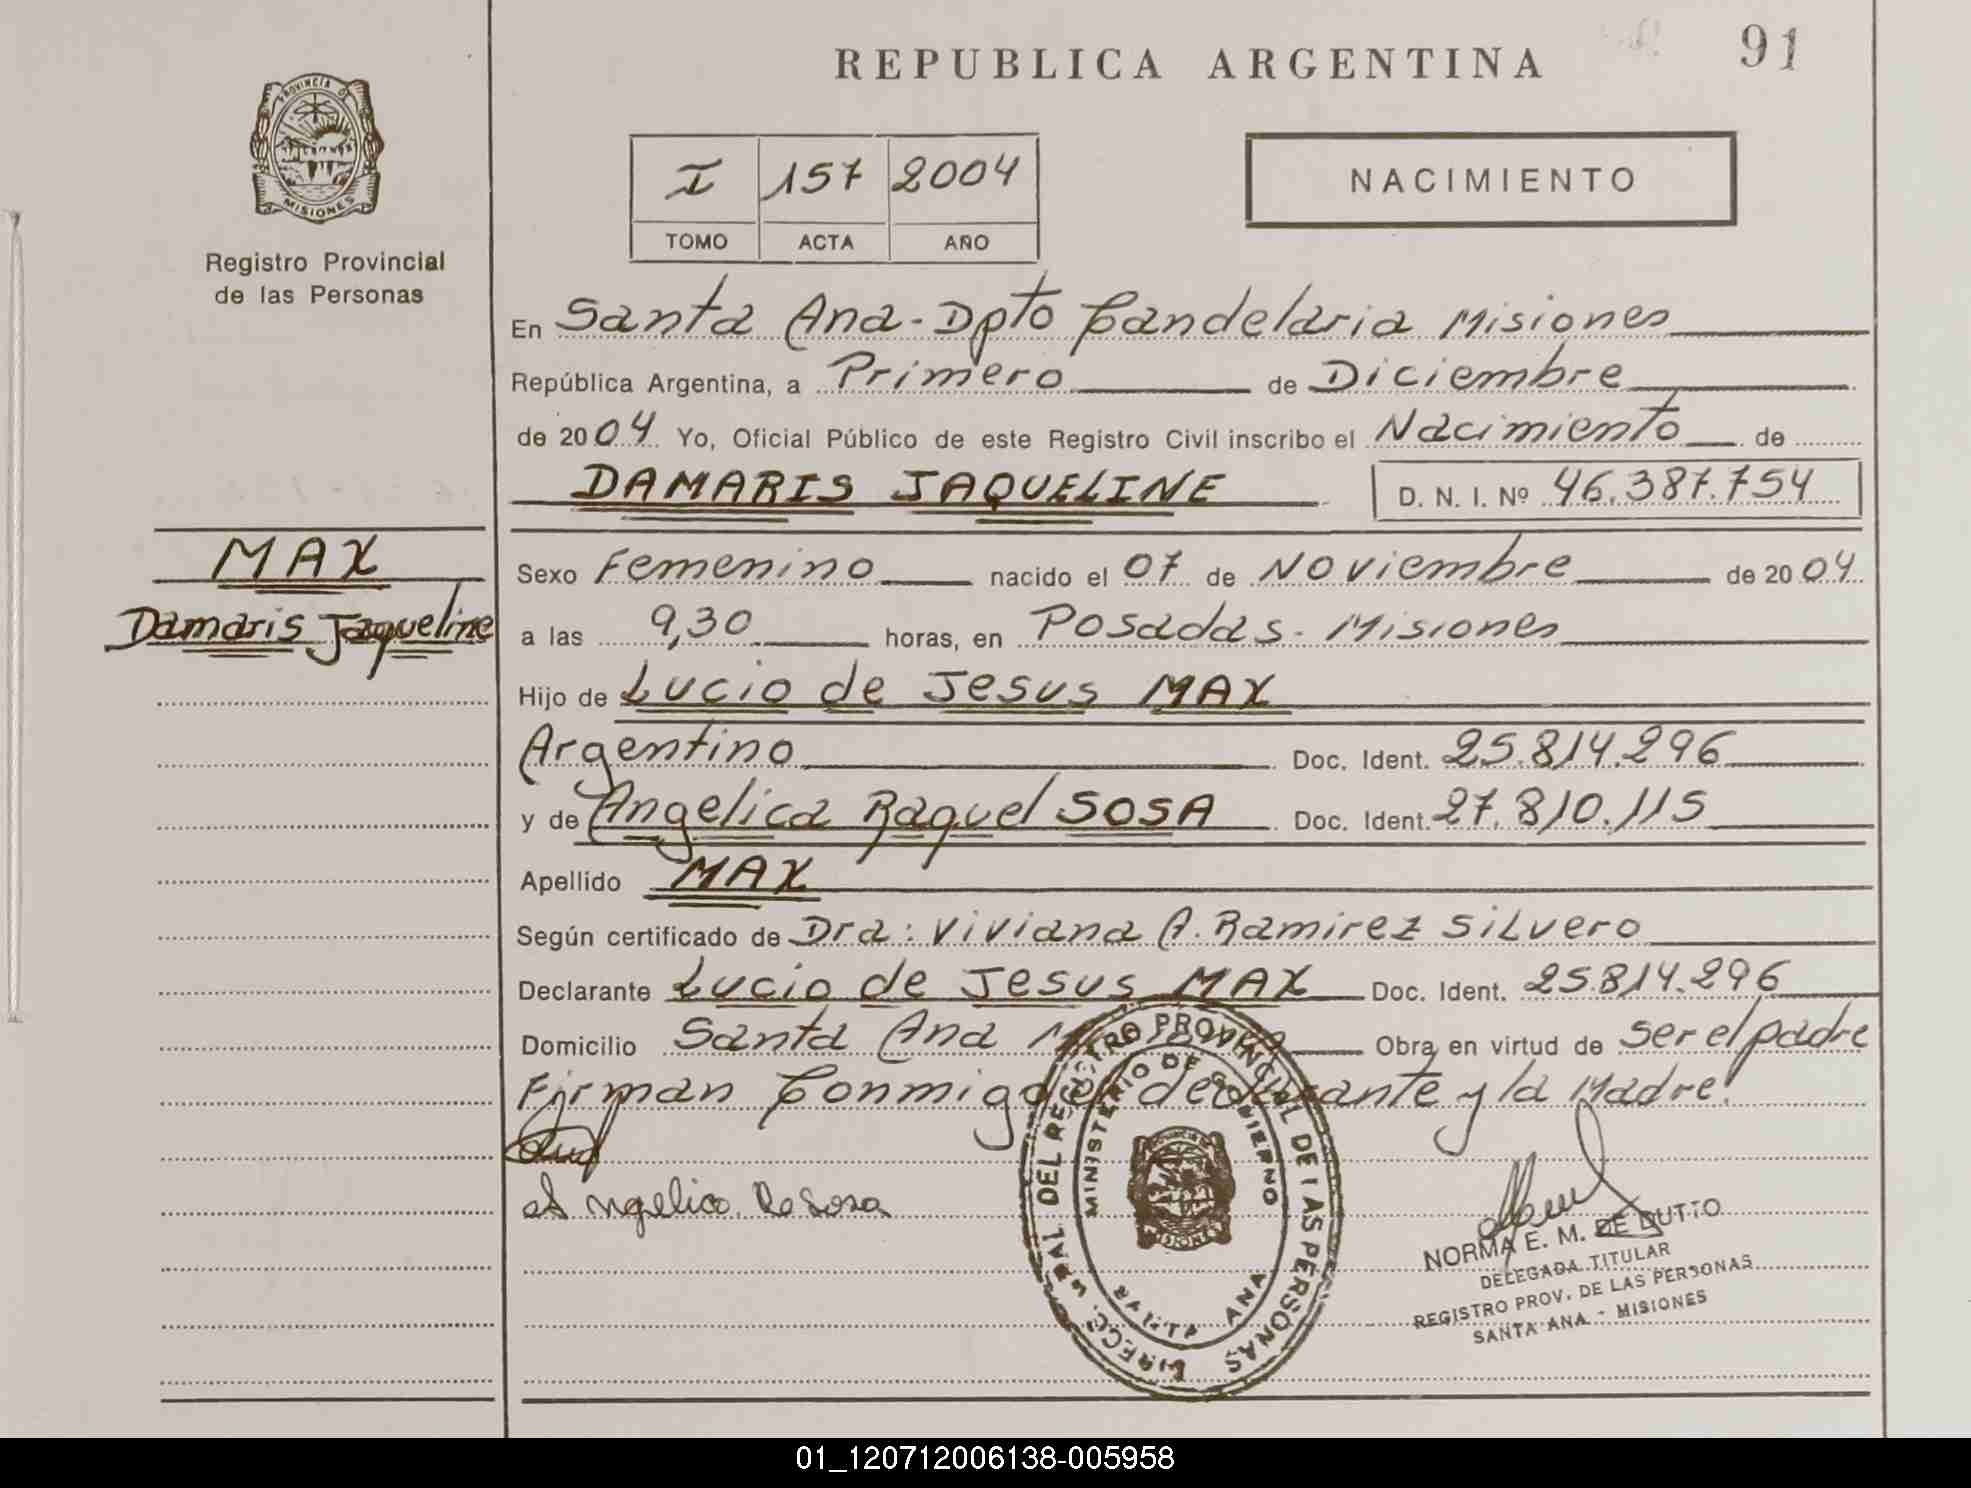 REPUBLICA ARGENTINA
91
PROVINCIA DE
MISIONES
Registro Provincial
de las Personas
I 157 2004
TOMO ACTA AÑO
NACIMIENTO
En Santa Ana - Dpto Candelaria Misiones
República Argentina, a Primero de Diciembre
de 2004 Yo, Oficial Público de este Registro Civil inscribo el Nacimiento de
DAMARIS JAQUELINE D. N. I. Nº 46.387.754
MAX
Damaris Jaqueline
Sexo Femenino nacido el 07 de Noviembre de 2004
a las 9,30 horas, en Posadas - Misiones
Hijo de Lucio de Jesus MAX
Argentino Doc. Ident. 25.814.296
y de Angelica Raquel SOSA Doc. Ident. 27.810.115
Apellido MAX
Según certificado de Dra: Viviana A. Ramirez Silvero
Declarante Lucio de Jesus MAX Doc. Ident. 25.814.296
Domicilio Santa Ana Misiones Obra en virtud de ser el padre
Firman Conmigo el declarante y la Madre.
Angelica Re Sosa
DIRECC. GRAL DEL REGISTRO PROVINCIAL DE LAS PERSONAS
MINISTERIO DE GOBIERNO
SANTA ANA
NORMA E. M. DE DUTTO
DELEGADA TITULAR
REGISTRO PROV. DE LAS PERSONAS
SANTA ANA - MISIONES
01_120712006138-005958